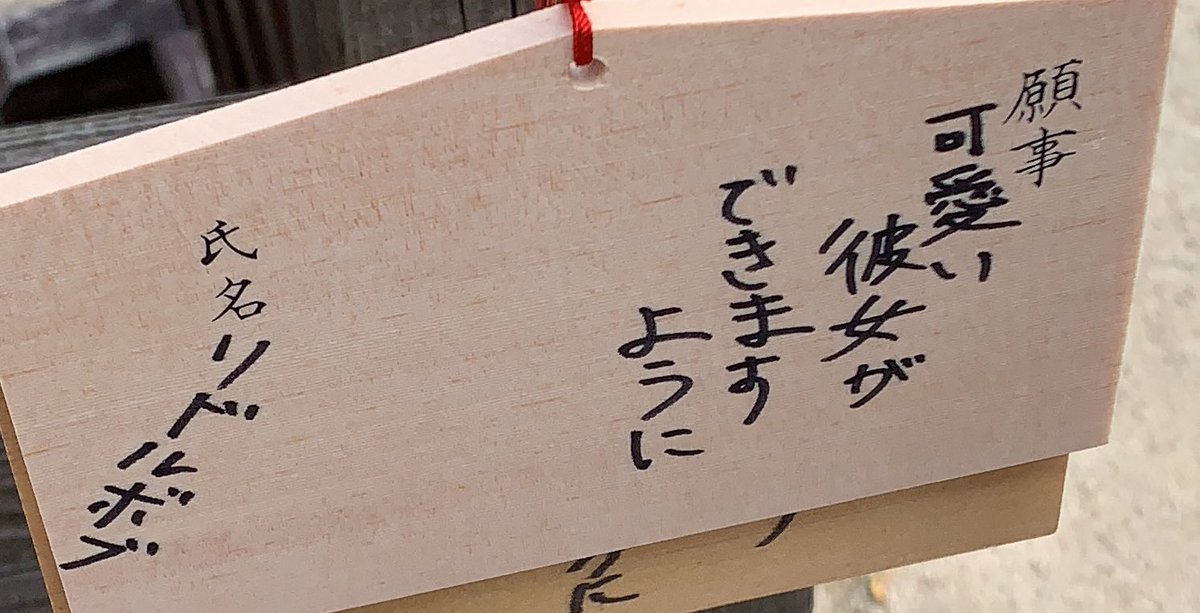 願事
可愛い
彼女が
できます
ように
氏名 リドルボブ